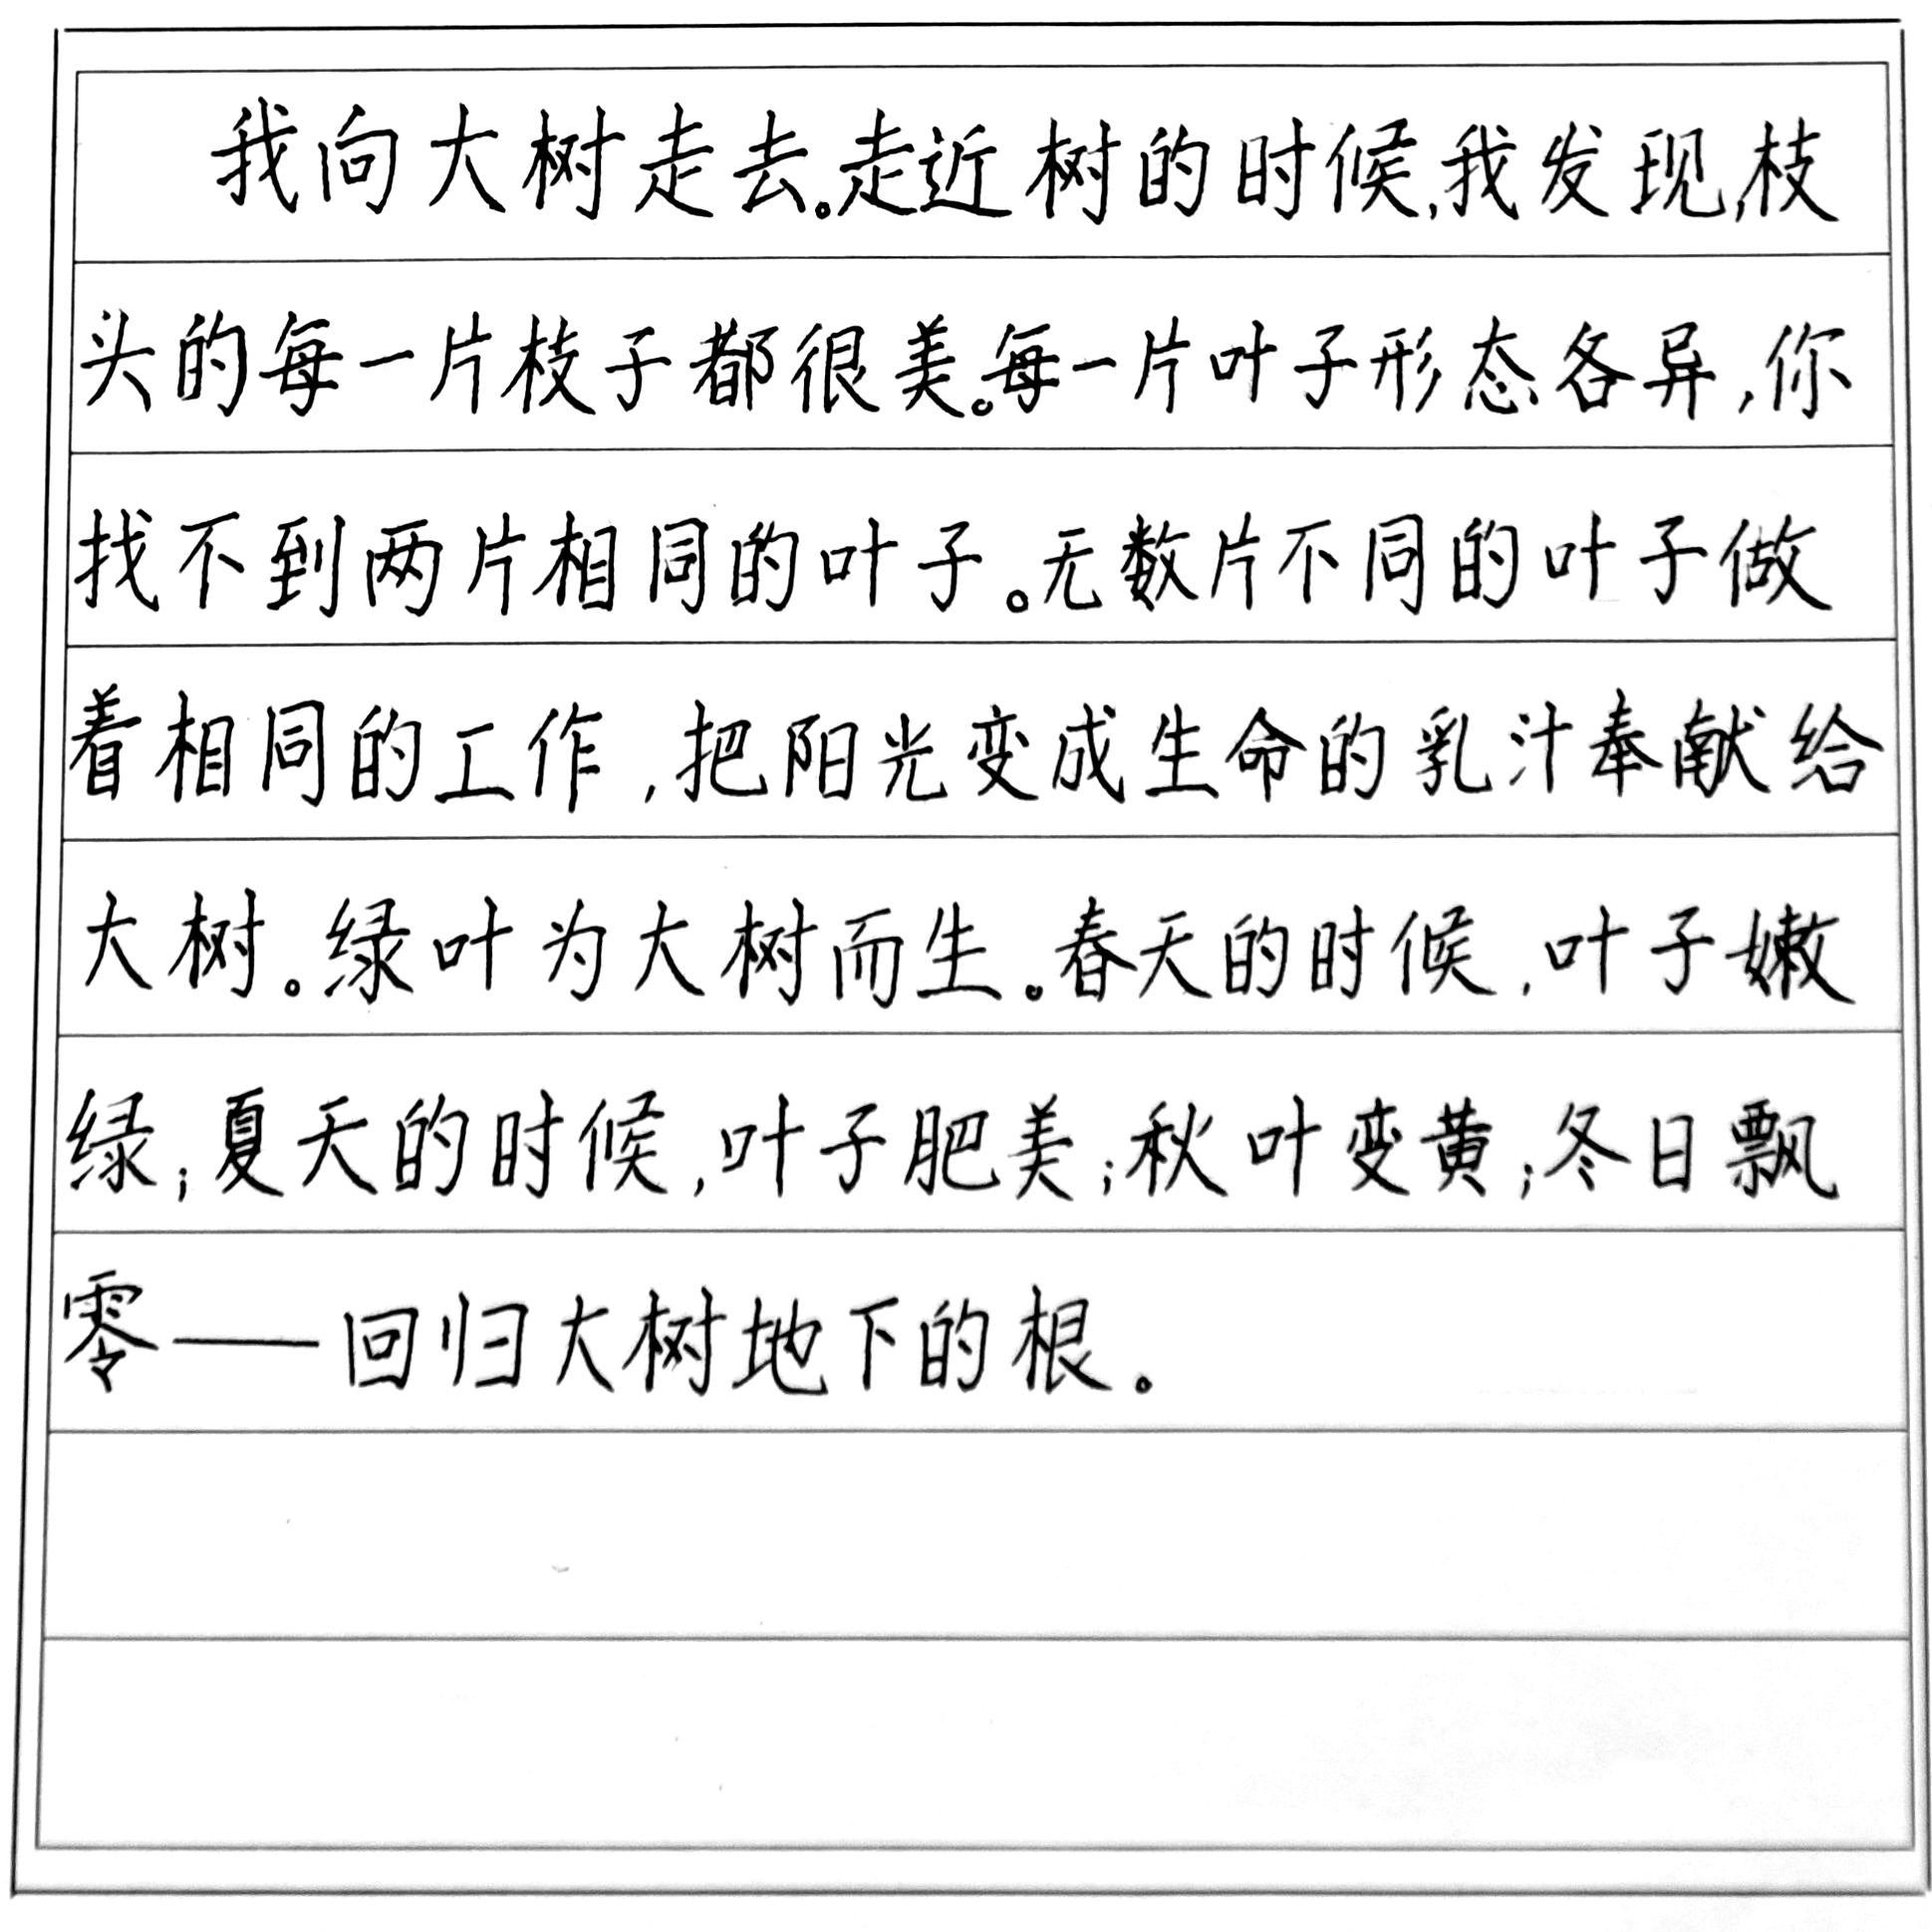 我向大树走去。走近树的时候,我发现,枝
头的每一片枝子都很美。每一片叶子形态各异,你
找不到两片相同的叶子。无数片不同的叶子做
着相同的工作,把阳光变成生命的乳汁奉献给
大树。绿叶为大树而生。春天的时候,叶子嫩
绿;夏天的时候,叶子肥美;秋叶变黄;冬日飘
零——回归大树地下的根。